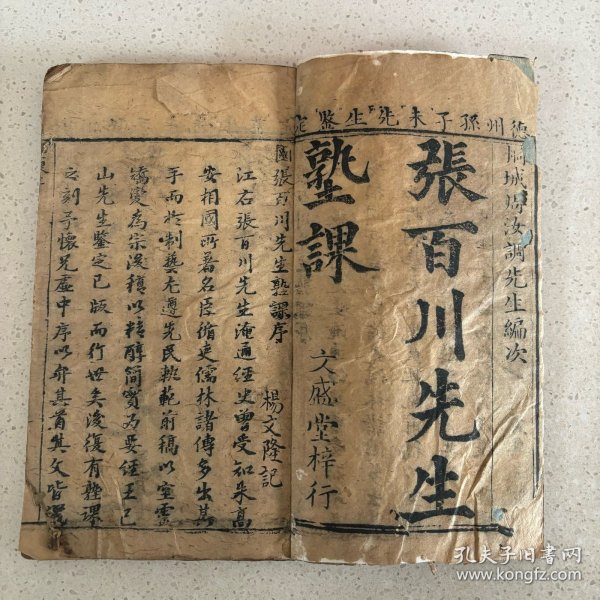 德州孫子未先生鑒定
桐城馮汝調先生編次
張百川先生
塾課
文盛堂梓行
國張百川先生塾課序
楊文隆記
江右張百川先生淹通經史曾受知朱高
安相國所著名臣循吏儒林諸傳多出其
手而於制藝尤遵先民軌範前稿以空靈
矯變為宗後稿以精醇簡實為要經王已
山先生鑒定已版而行世矣後復有塾課
之刻予懷兄虛中序以弁其首其文皆選
孔夫子旧书网
www.kongfz.com